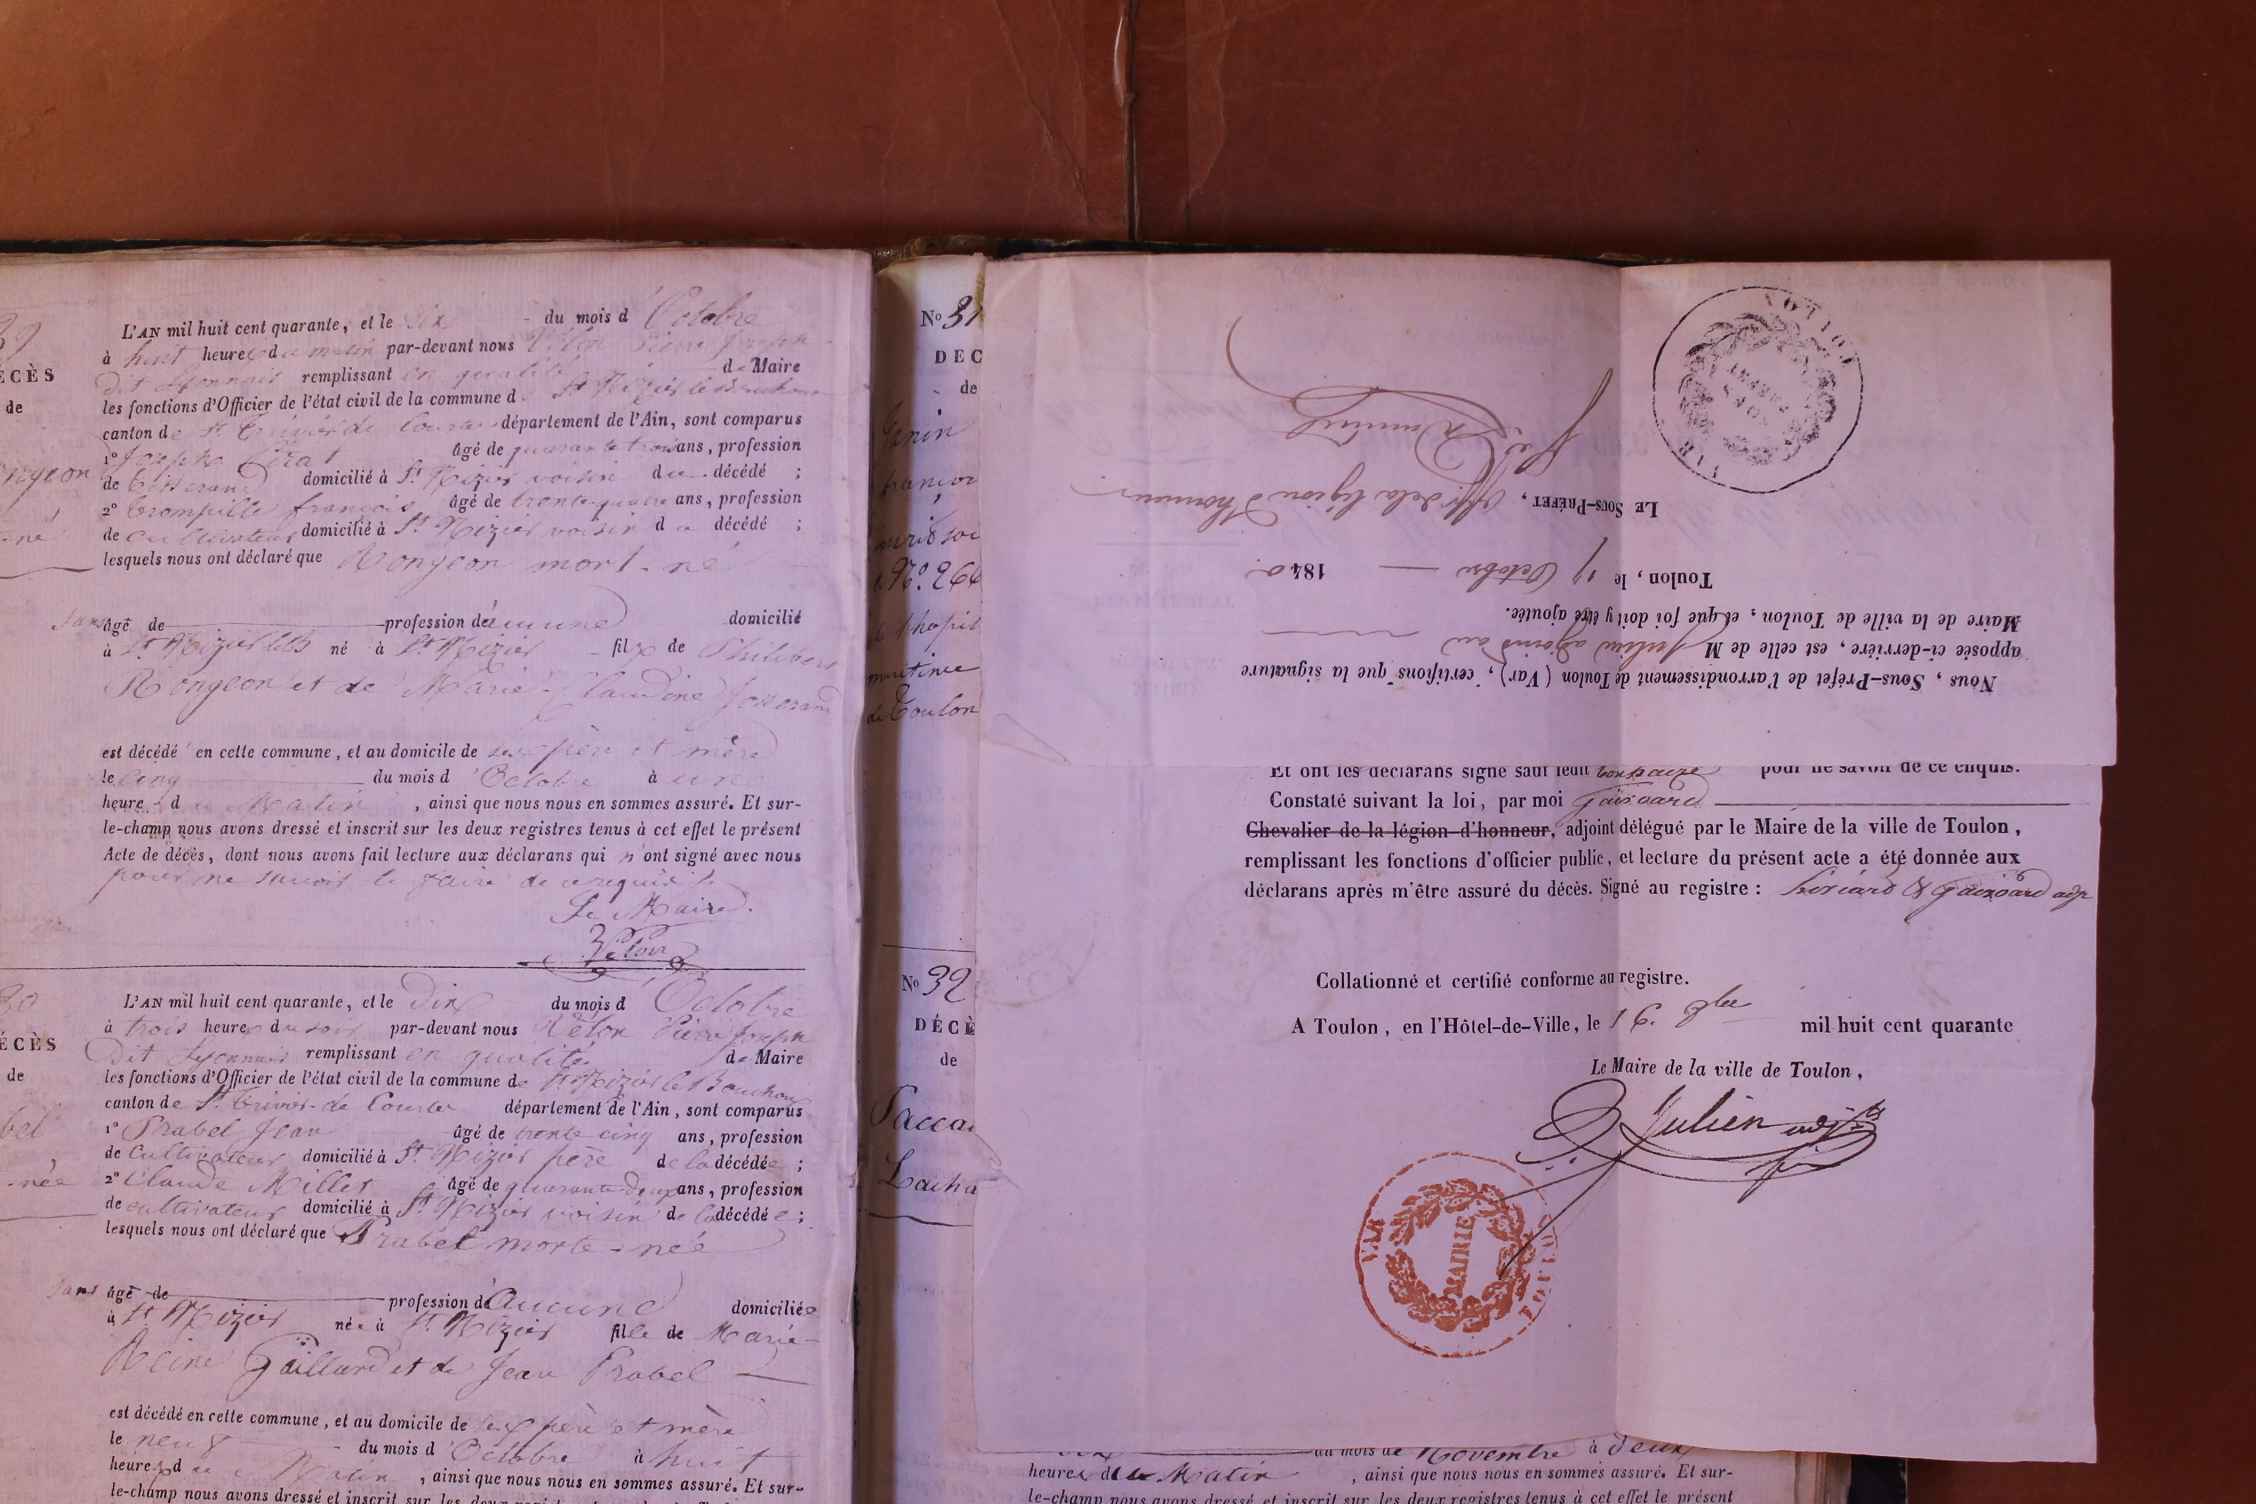 39
DÉCÈS
de
Rongeon
-né
L'AN mil huit cent quarante, et le six du mois d'Octobre
à huit heures du matin par-devant nous Pélon Pierre Joseph
Dit Lyonnais remplissant en qualité de Maire
les fonctions d'Officier de l'état civil de la commune de St Nizier le Bouchoux
canton de St Trivier de Courtes département de l'Ain, sont comparus
1° Joseph âgé de quarante trois ans, profession
de domicilié à St Nizier voisin du décédé ;
2° françois âgé de trente quatre ans, profession
de cultivateur domicilié à St Nizier voisin du décédé ;
lesquels nous ont déclaré que Rongeon mort-né
sans âgé de profession d'aucune domicilié
à St Nizier né à St Nizier fils de Philibert
Rongeon et de Marie Claudine Josserand
est décédé en cette commune, et au domicile de ses père et mère
le cinq du mois d'Octobre à une
heure du Matin, ainsi que nous nous en sommes assuré. Et sur-
le-champ nous avons dressé et inscrit sur les deux registres tenus à cet effet le présent
Acte de décès, dont nous avons fait lecture aux déclarans qui n'ont signé avec nous
pour ne savoir le faire de ce requis
Le Maire
Pélon
30
DÉCÈS
de
-née
L'AN mil huit cent quarante, et le Dix du mois d'Octobre
à trois heures du soir par-devant nous Pélon Pierre Joseph
Dit Lyonnais remplissant en qualité de Maire
les fonctions d'Officier de l'état civil de la commune de St Nizier le Bouchoux
canton de St Trivier-de Courtes département de l'Ain, sont comparus
1° Prabel Jean âgé de trente cinq ans, profession
de cultivateur domicilié à St Nizier père de la décédée ;
2° Claude Millet âgé de quarante deux ans, profession
de cultivateur domicilié à St Nizier voisin de la décédée ;
lesquels nous ont déclaré que Prabel morte-née
sans âgé de profession d'Aucune domiciliée
à St Nizier née à St Nizier fille de Marie-
Reine Gaillard et de Jean Prabel
est décédé en cette commune, et au domicile de ses père et mère
le neuf du mois d'Octobre à huit
heures du Matin, ainsi que nous nous en sommes assuré. Et sur-
le-champ nous avons dressé et inscrit sur les deux
No 31
DEC
de
Janin
françoi
No. 266
hopit
maritime
de Toulon
No 32
DÉCÈ
de
Paccau
Lacha
Nous, Sous-Préfet de l'arrondissement de Toulon (Var), certifions que la signature
apposée ci-derrière, est celle de M Julien adjoint au
Maire de la ville de Toulon, et que foi doit y être ajoutée.
Toulon, le 17 Octobre 1840.
LE SOUS-PRÉFET, Offr de la légion d'honneur
VAR TOULON
SOUS PRÉFET
Et ont les déclarans signé sauf ledit pour ne savoir de ce enquis.
Constaté suivant la loi, par moi Gairoard
Chevalier de la légion d'honneur, adjoint délégué par le Maire de la ville de Toulon,
remplissant les fonctions d'officier public, et lecture du présent acte a été donnée aux
déclarans après m'être assuré du décès. Signé au registre : & Gairoard adjt
Collationné et certifié conforme au registre.
A Toulon, en l'Hôtel-de-Ville, le 16. 8bre mil huit cent quarante
Le Maire de la ville de Toulon,
Julien adjt
VAR MAIRIE TOULON
du mois de Novembre à deux
heures du Matin, ainsi que nous nous en sommes assuré. Et sur-
le-champ nous avons dressé et inscrit sur les deux registres tenus à cet effet le présent